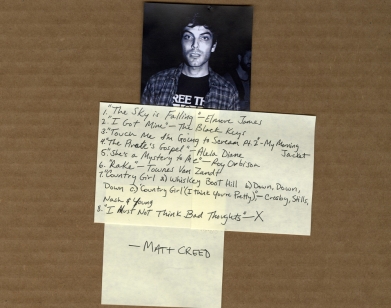 REE T
1. "The Sky is Falling" - Elmore James
2. I Got Mine" - The Black Keys
3. "Touch Me I'm Going to Scream Pt. 1 - My Morning
Jacket
4. "The Pirate's Gospel" - Alela Diane
5. "She's a Mystery to Me" - Roy Orbison
6. "Rake" - Townes Van Zandt
7. "Country Girl a) Whiskey Boot Hill b) Down, Down,
Down c) "Country Girl" (I Think You're Pretty)" - Crosby, Stills,
Nash & Young
8. "I Must Not Think Bad Thoughts" - X
- MATT CREED